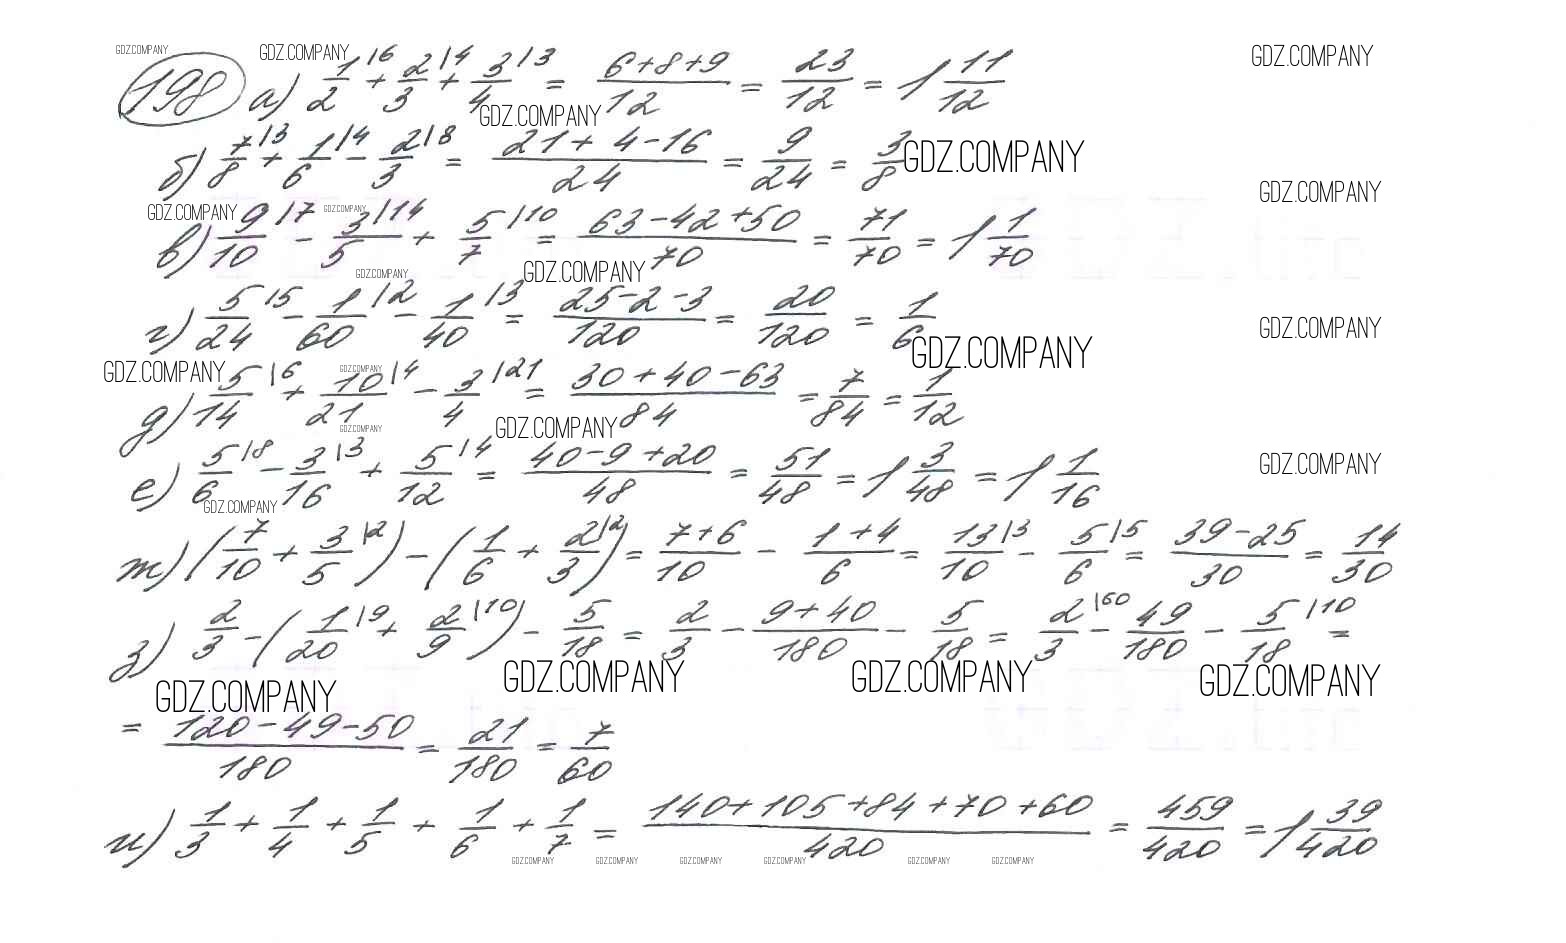 GDZ.COMPANY GDZ.COMPANY GDZ.COMPANY
198 а) 1/2|6 + 2/3|4 + 3/4|3 = (6+8+9)/12 = 23/12 = 1 11/12
GDZ.COMPANY
б) 7/8|3 + 1/6|4 - 2/3|8 = (21+4-16)/24 = 9/24 = 3/8 GDZ.COMPANY
GDZ.COMPANY
GDZ.COMPANY GDZ.COMPANY
в) 9/10|7 - 3/5|14 + 5/7|10 = (63-42+50)/70 = 71/70 = 1 1/70
GDZ.COMPANY GDZ.COMPANY
г) 5/24|5 - 1/60|2 - 1/40|3 = (25-2-3)/120 = 20/120 = 1/6
GDZ.COMPANY
GDZ.COMPANY
GDZ.COMPANY GDZ.COMPANY
д) 5/14|6 + 10/21|4 - 3/4|21 = (30+40-63)/84 = 7/84 = 1/12
GDZ.COMPANY GDZ.COMPANY
е) 5/6|8 - 3/16|3 + 5/12|4 = (40-9+20)/48 = 51/48 = 1 3/48 = 1 1/16
GDZ.COMPANY
GDZ.COMPANY
ж) (7/10 + 3/5|2) - (1/6 + 2/3|2) = (7+6)/10 - (1+4)/6 = 13/10|3 - 5/6|5 = (39-25)/30 = 14/30
з) 2/3 - (1/20|9 + 2/9|10) - 5/18 = 2/3 - (9+40)/180 - 5/18 = 2/3|60 - 49/180 - 5/18|10 =
GDZ.COMPANY GDZ.COMPANY GDZ.COMPANY GDZ.COMPANY
= (120-49-50)/180 = 21/180 = 7/60
и) 1/3 + 1/4 + 1/5 + 1/6 + 1/7 = (140+105+84+70+60)/420 = 459/420 = 1 39/420
GDZ.COMPANY GDZ.COMPANY GDZ.COMPANY GDZ.COMPANY GDZ.COMPANY GDZ.COMPANY